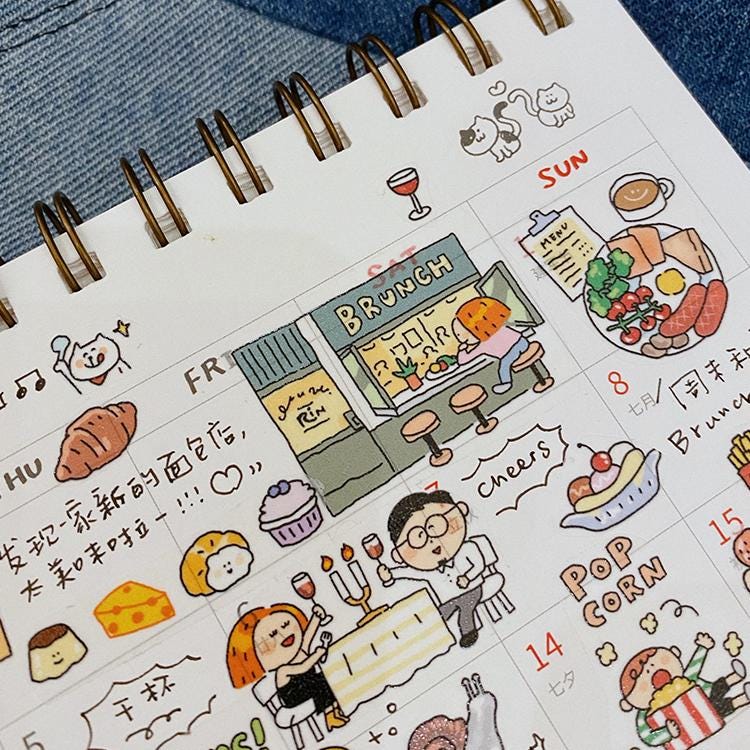 SUN
SAT
BRUNCH
MENU
FRI
RIN
HU
发现一家新的面包店,
太美味啦~!!!♡
8
七月
周末和
Brunch
cheers
7
15
POP
CORN
14
七夕
干杯
5